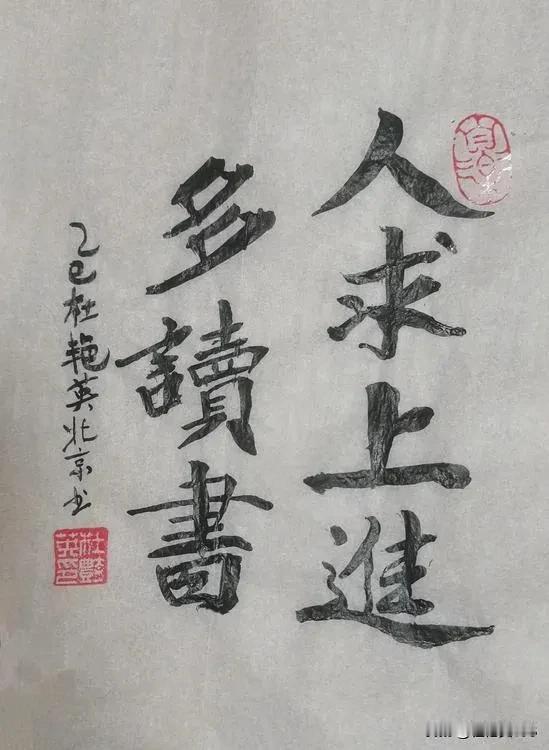 人求上進
多讀書
乙巳杜艳英北京书
杜艷英印